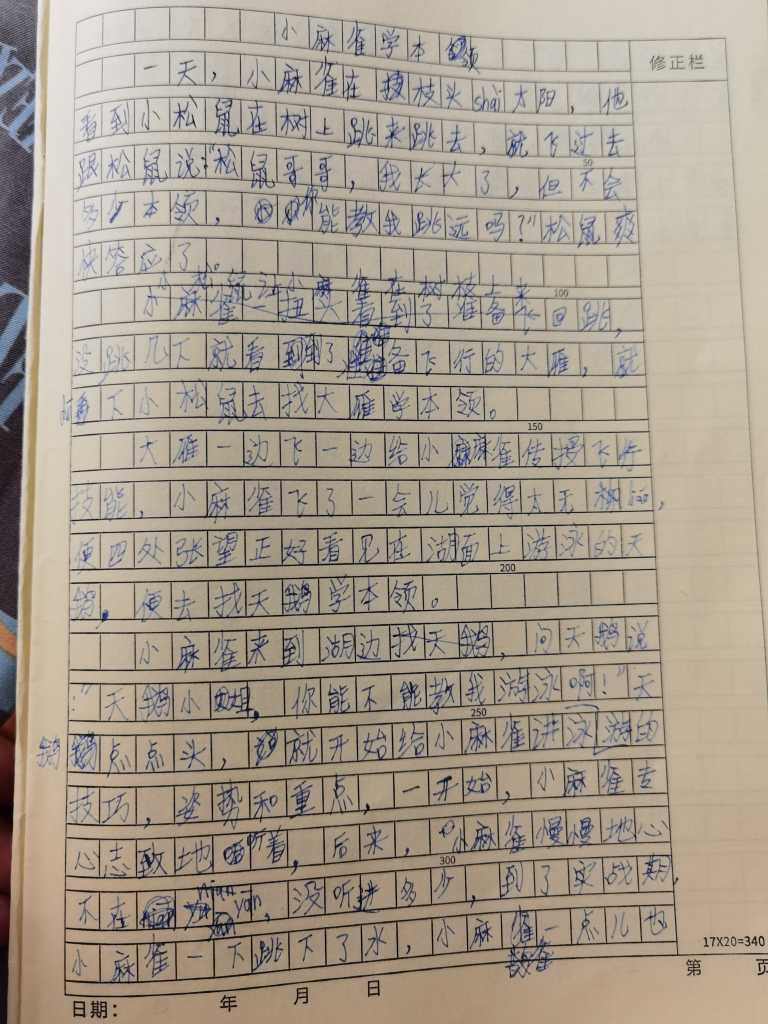 小麻雀学本领
修正栏
一天，小麻雀在枝头shài太阳，他
看到小松鼠在树上跳来跳去，就飞过去
跟松鼠说："松鼠哥哥，我长大了，但不会
50
多少本领，你能教我跳远吗？"松鼠爽
快答应了。
小松鼠让小麻雀在树枝上来
小麻雀一扭头看到了准备飞回跳，
100
没跳几下就看到了准备飞行的大雁，就
下小松鼠去找大雁学本领。
150
大雁一边飞一边给小麻雀传授飞行
技能，小麻雀飞了一会儿觉得太无
便四处张望正好看见在湖面上游泳的天
200
鹅，便去找天鹅学本领。
小麻雀来到湖边找天鹅，问天鹅说
："天鹅小姐，你能不能教我游泳啊！"天
250
鹅点点头，就开始给小麻雀讲泳游的
技巧，姿势和重点，一开始，小麻雀专
心志致地听着，后来，小麻雀慢慢地心
300
不在yān，没听进多少，到了实战期，
小麻雀一下跳下了水，小麻雀一点儿也
17X20=340
日期： 年 月 日
第 页